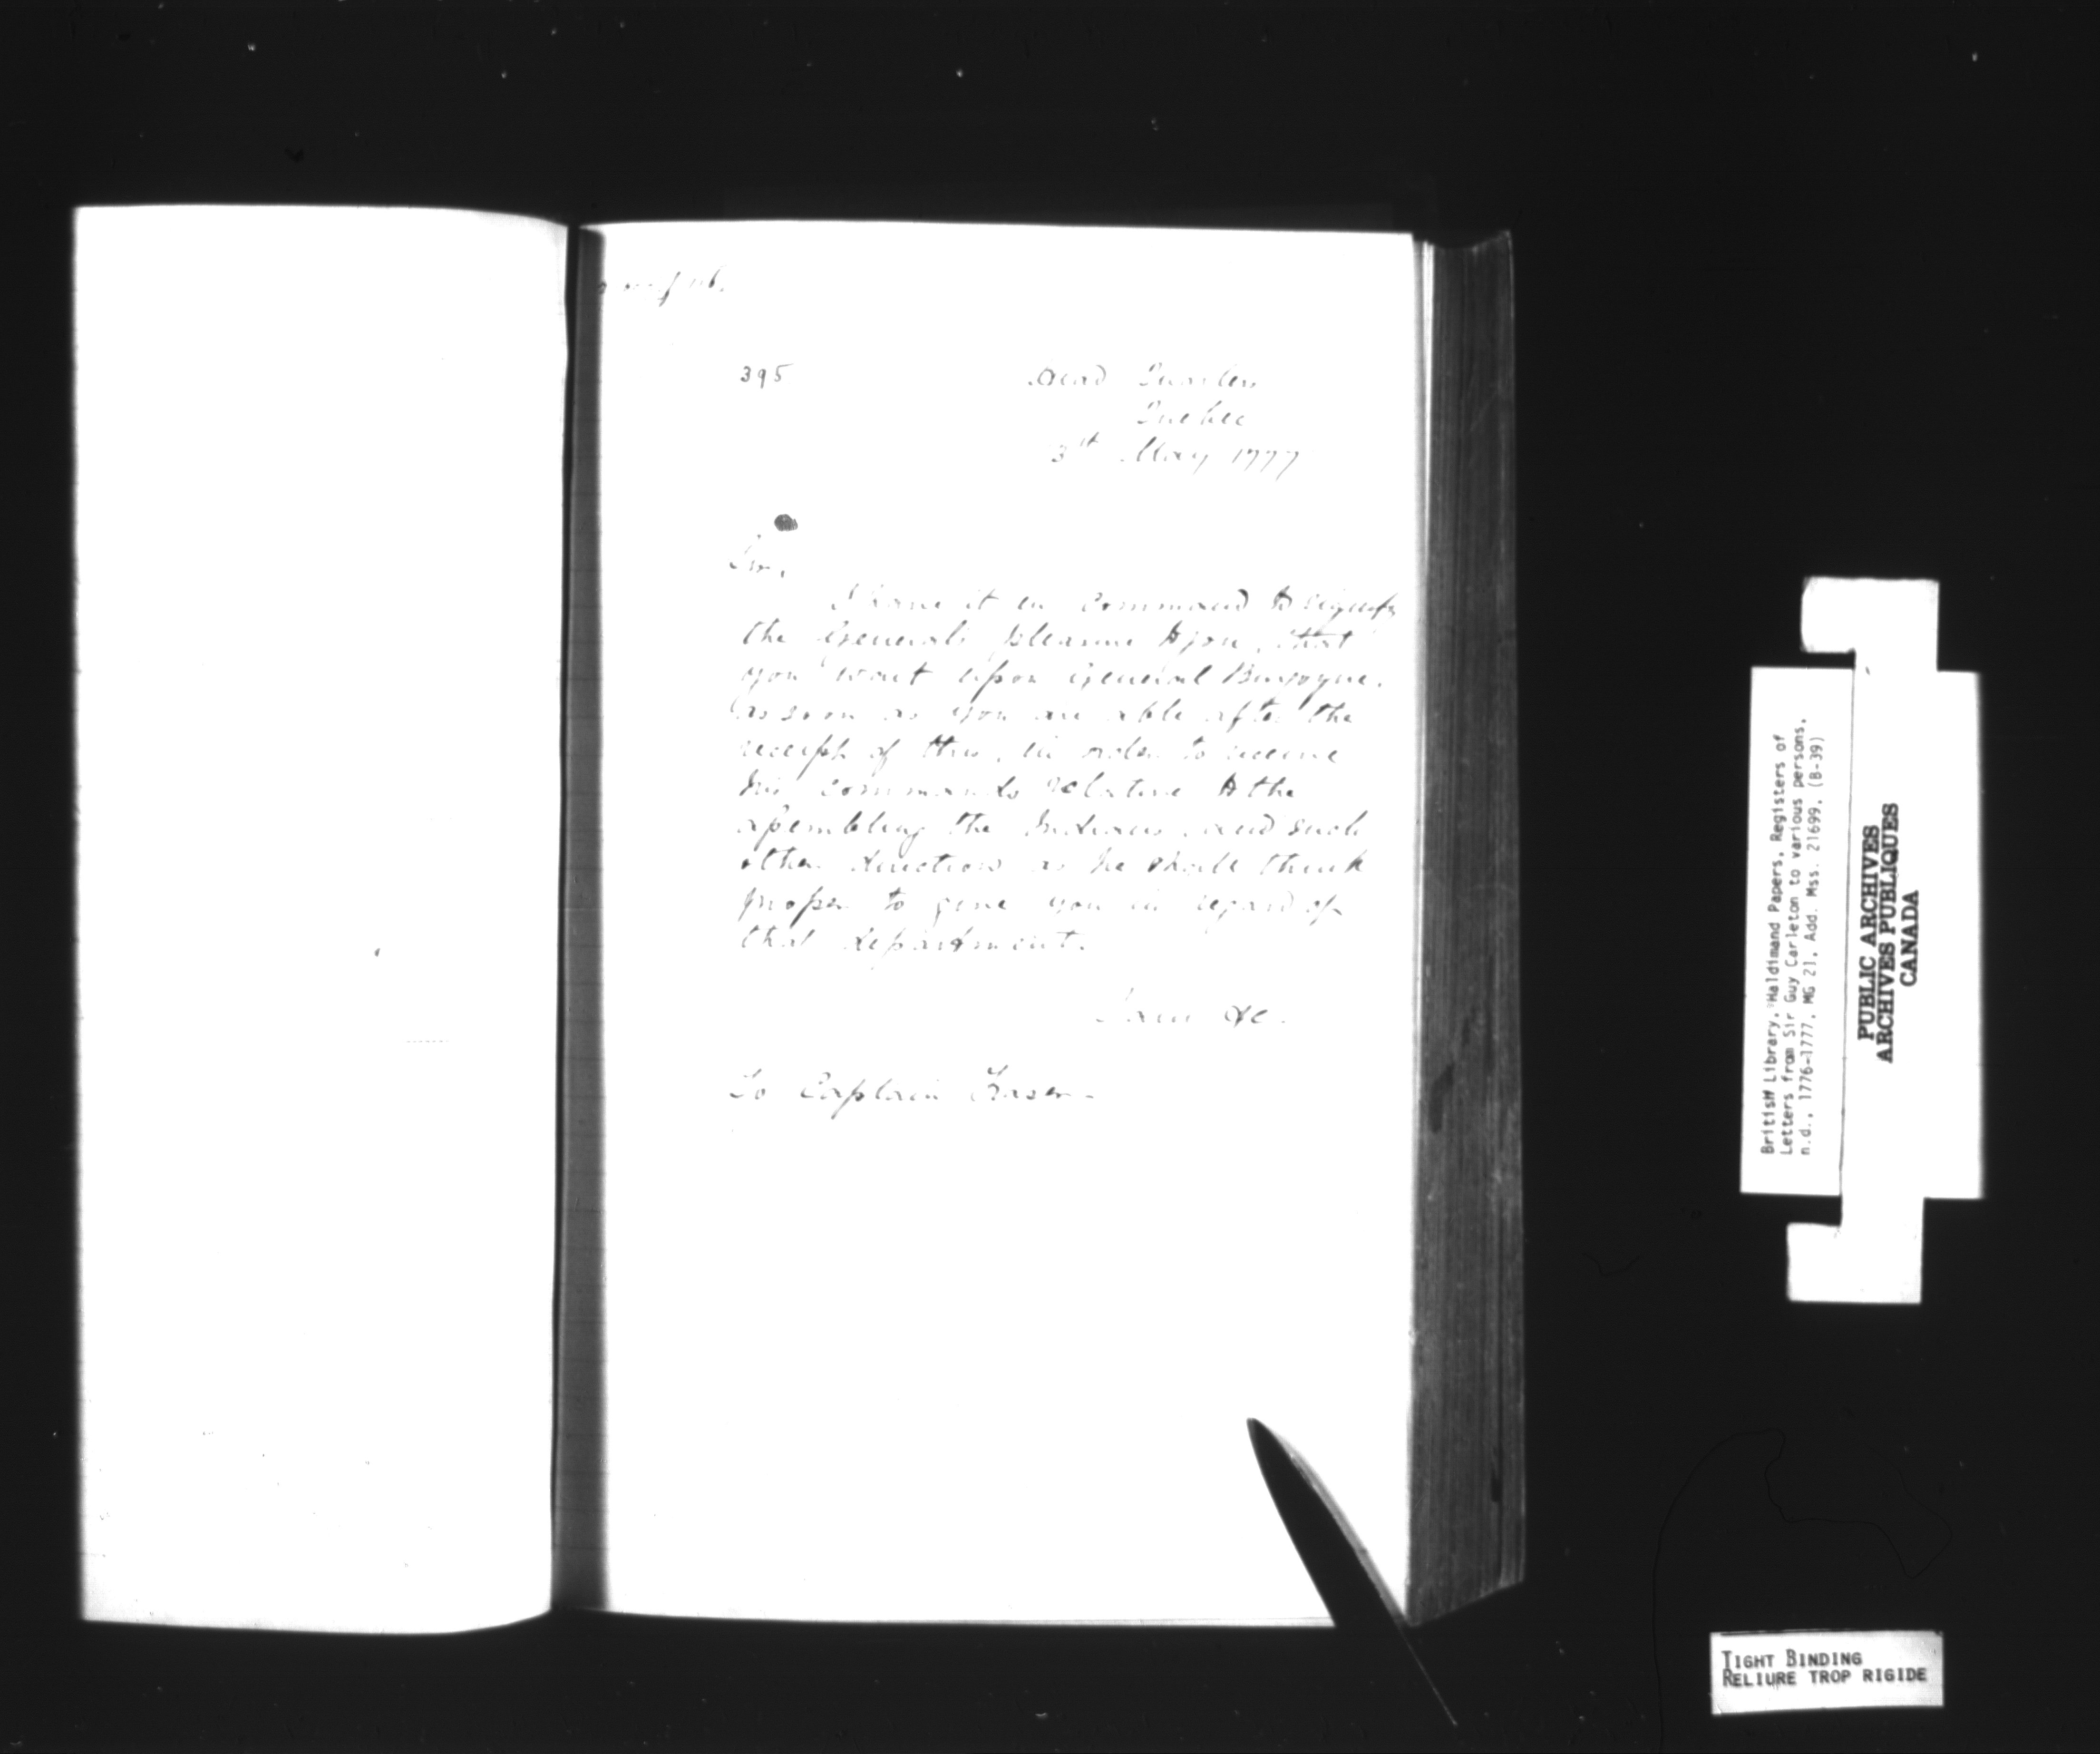 395
Head Quarters
Quebec
3d May 1777
Sir,
I have it in Command to signify
the Generals pleasure to you, that
you wait upon General Burgoyne,
as soon as you are able after the
receipt of this, in order to receive
his commands relative to the
assembling the Indians, and such
other directions as he shall think
proper to give you in regard of
that department.
I am &c.
To Captain Fraser
British Library, Haldimand Papers, Registers of
Letters from Sir Guy Carleton to various persons,
n.d., 1776-1777, MG 21, Add. Mss. 21699, (B-39)
PUBLIC ARCHIVES
ARCHIVES PUBLIQUES
CANADA
TIGHT BINDING
RELIURE TROP RIGIDE